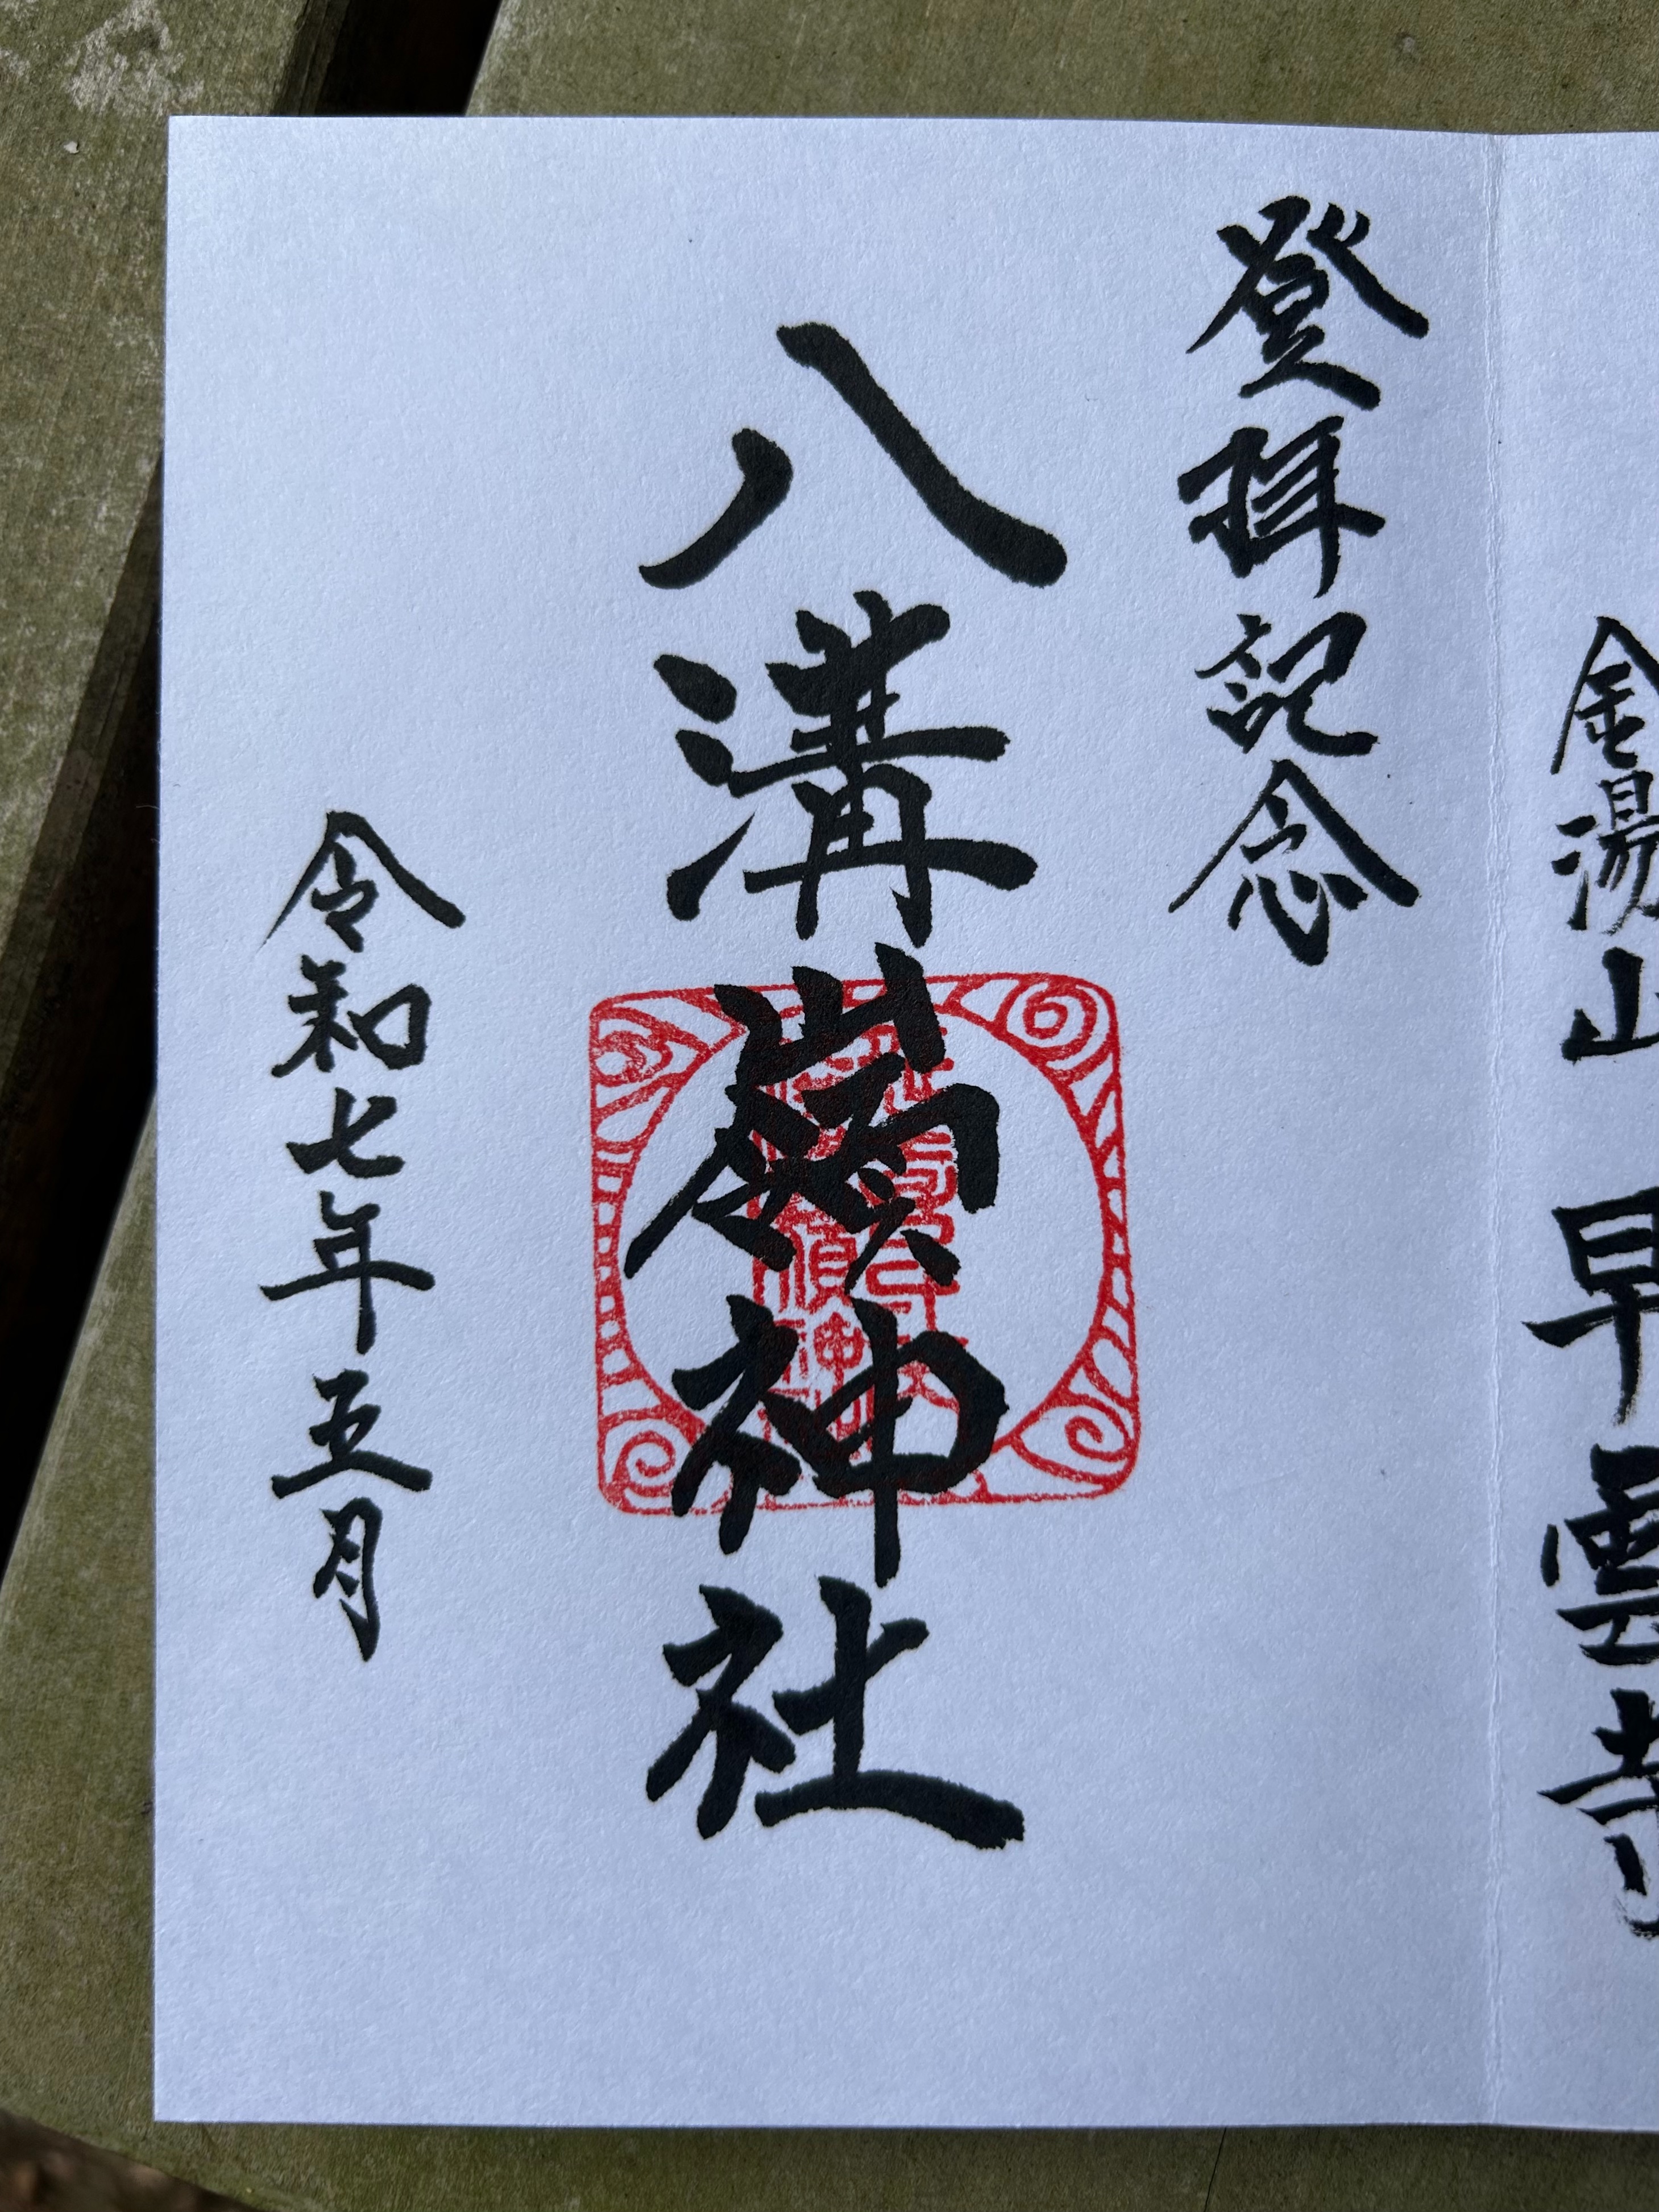 金湯山
早雲寺
登拝記念
八溝嶺神社
令和七年五月